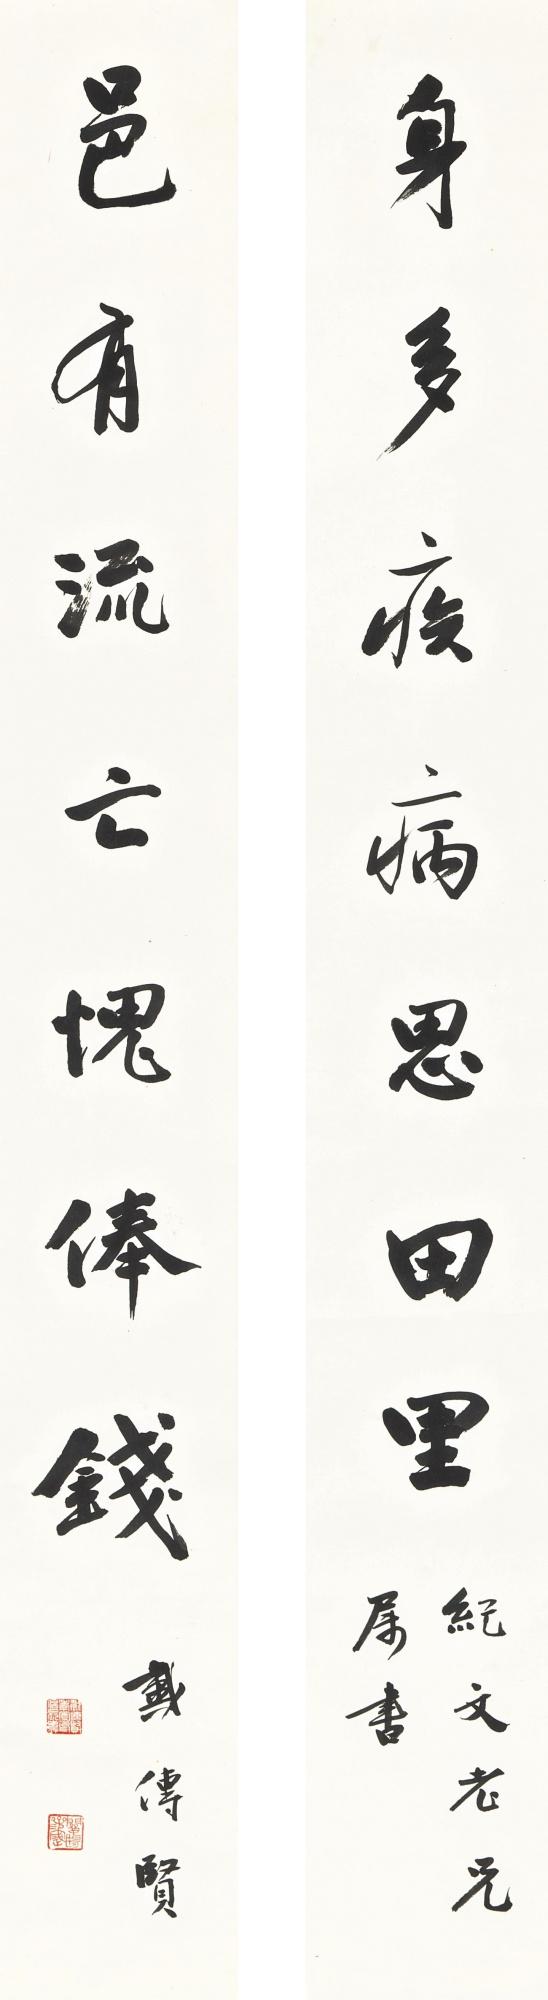 身多疾病思田里
紀文老兄
屬書
邑有流亡愧俸錢
戴傳賢